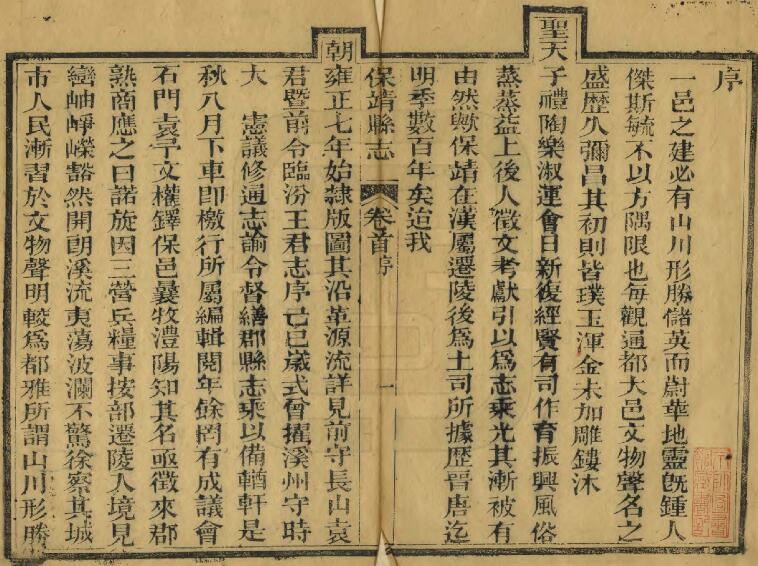 序
一邑之建必有山川形勝儲英而蔚華地靈旣鍾人
傑斯毓不以方隅限也每觀通都大邑文物聲名之
盛歷久彌昌其初則皆璞玉渾金未加雕鏤沐
聖天子禮陶樂淑運會日新復經賢有司作育振興風俗
蒸蒸益上後人徵文考獻引以爲志乘光其漸被有
由然歟保靖在漢屬遷陵後爲土司所據歷晉唐迄
明季數百年矣迨我
保靖縣志 卷首 序 一
朝雍正七年始隸版圖其沿革源流詳見前守長山袁
君暨前令臨汾王君志序己巳歲式會擢溪州守時
大 憲議修通志諭令督繕郡縣志乘以備輶軒是
秋八月下車卽檄行所屬編輯閱年餘罔有成議會
石門袁子文權鐸保邑曩牧澧陽知其名亟徵來郡
熟商應之曰諾旋因三營兵糧事按部遷陵入境見
巒岫崢嶸豁然開朗溪流夷蕩波瀾不驚徐察其城
市人民漸習於文物聲明較爲都雅所謂山川形勝